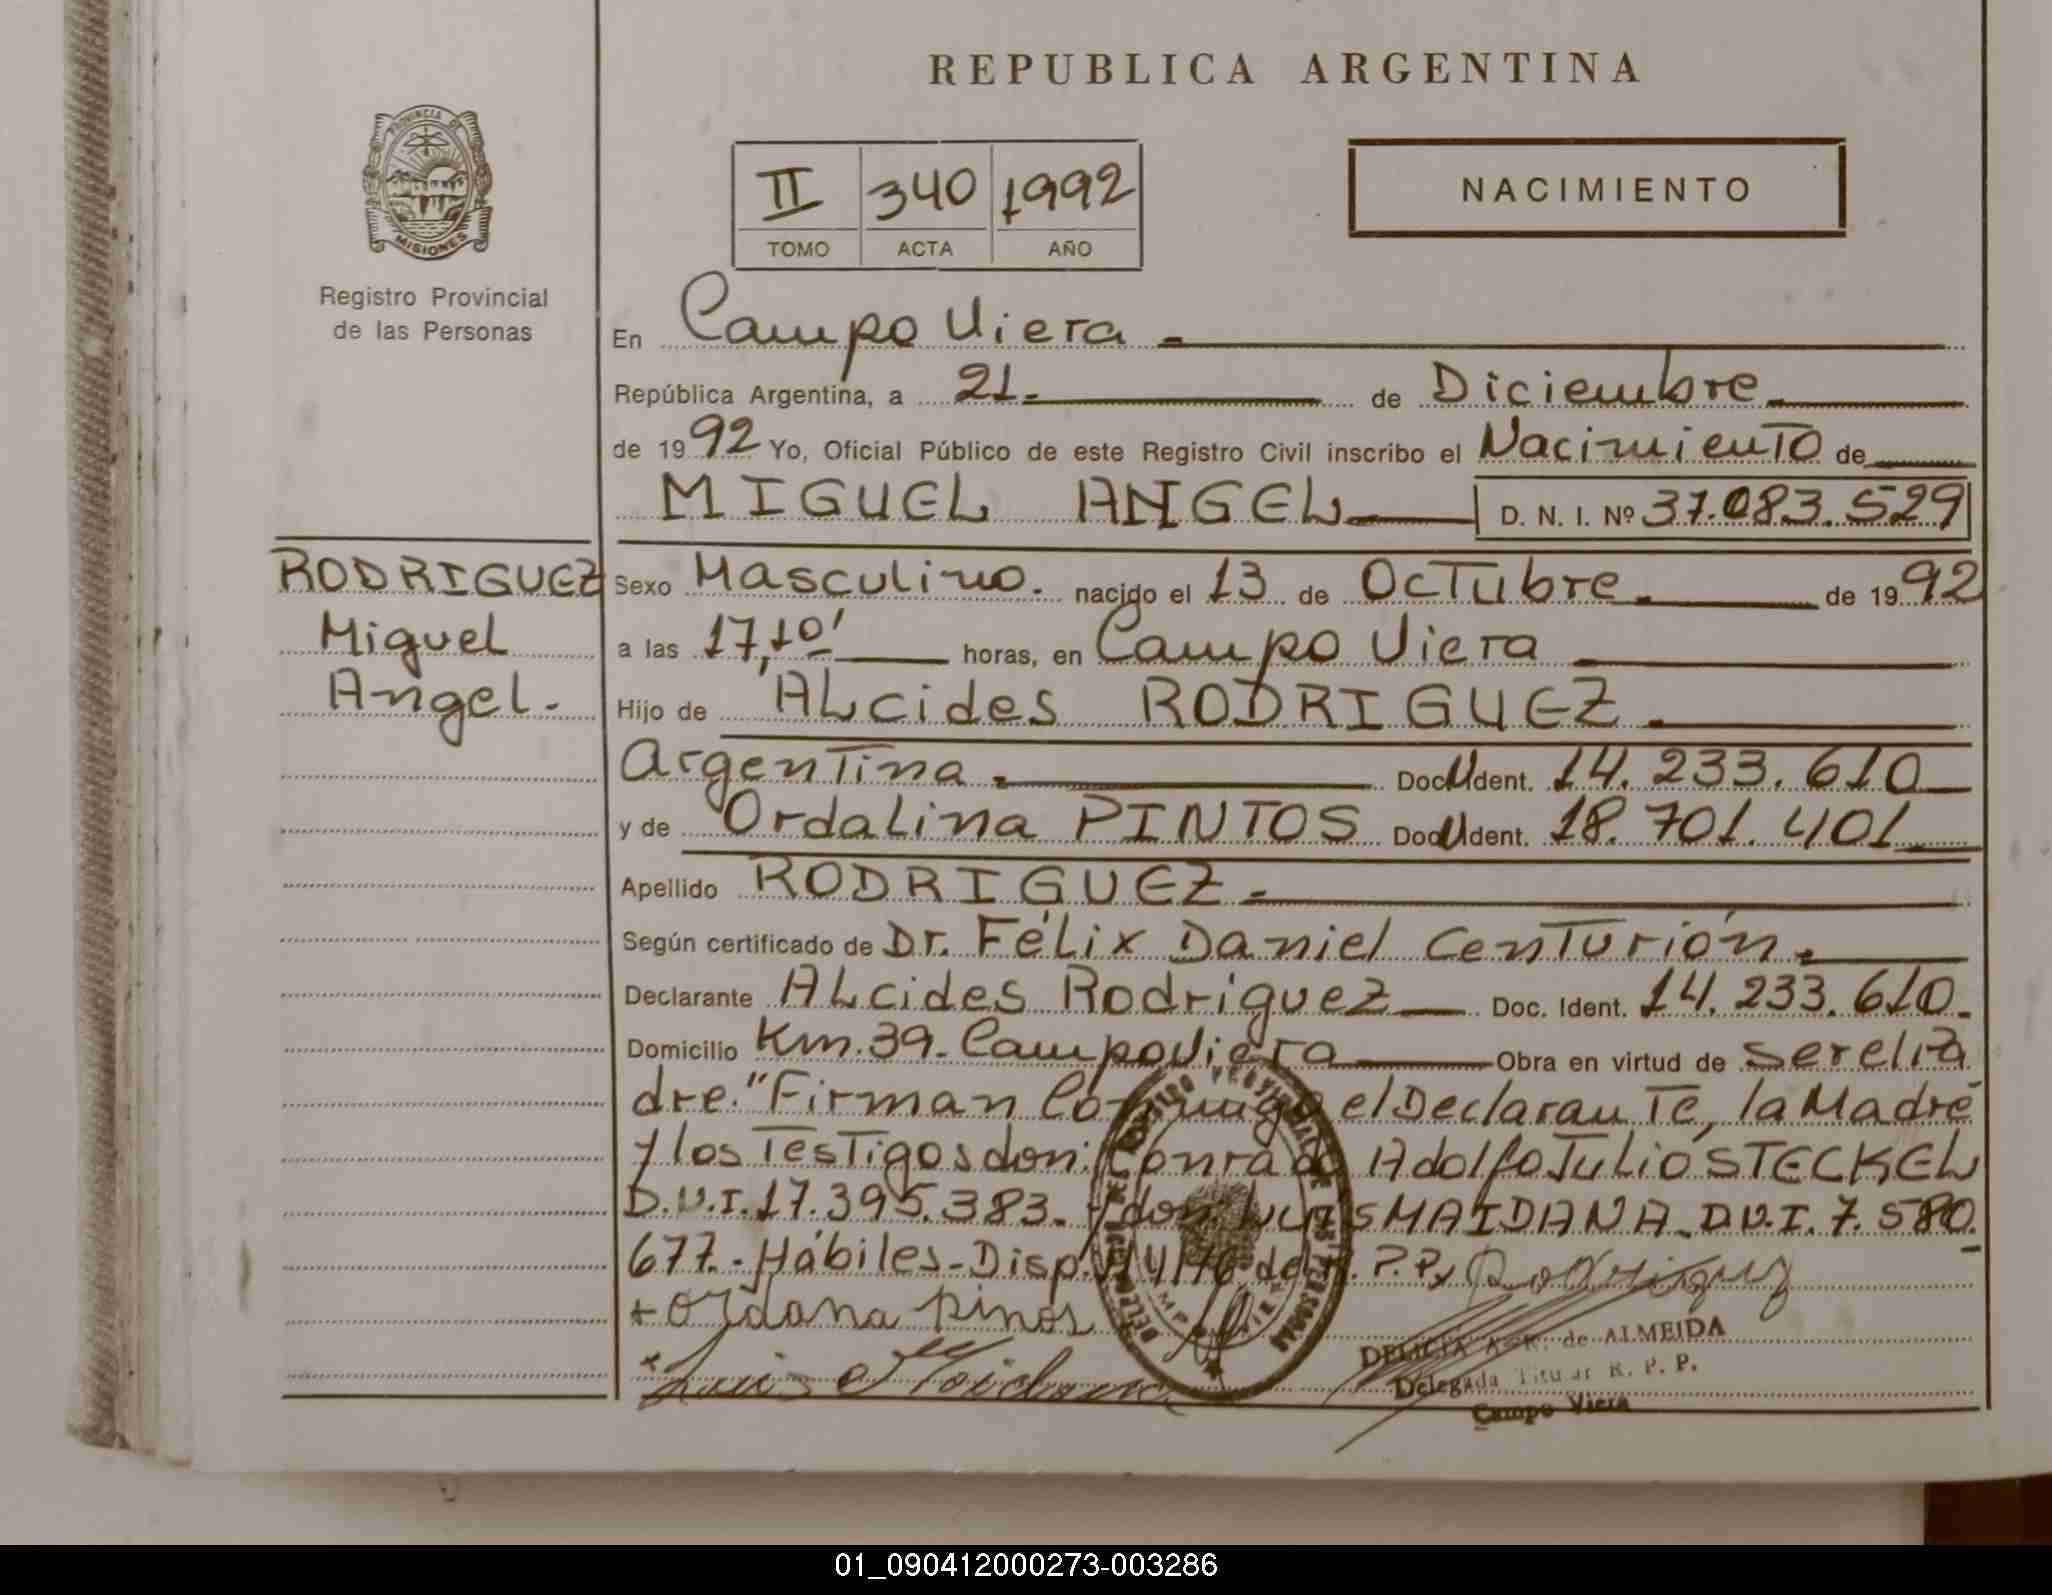 REPUBLICA ARGENTINA
PROVINCIA DE
MISIONES
Registro Provincial
de las Personas
II 340 1992
TOMO ACTA AÑO
NACIMIENTO
En Campo Viera
República Argentina, a 21. de Diciembre
de 1992 Yo, Oficial Público de este Registro Civil inscribo el Nacimiento de
MIGUEL ANGEL D. N. I. Nº 37.083.529
RODRIGUEZ
Miguel
Angel.
Sexo Masculino. nacido el 13 de Octubre de 1992
a las 17,10' horas, en Campo Viera
Hijo de ALcides RODRIGUEZ
Argentina Doc. Ident. 14.233.610
y de Ordalina PINTOS Doc. Ident. 18.701.401
Apellido RODRIGUEZ
Según certificado de Dr. Félix Daniel Centurión
Declarante ALcides Rodriguez Doc. Ident. 14.233.610
Domicilio Km.39. Campo Viera Obra en virtud de ser el Pa
dre." Firman Conmigo el Declarante, la Madre
y los Testigos don: Conrado Adolfo Julio STECKEL
D.N.I. 17.395.383. y don LUIS MAIDANA. D.N.I. 7.580.
677.- Hábiles-Disp. 14/76 de R.P.P. Rodriguez
+ Ordana pinos
x Luis Maidana
DELICIA A. R. de ALMEIDA
Delegada Titular R. P. P.
Campo Viera
01_090412000273-003286